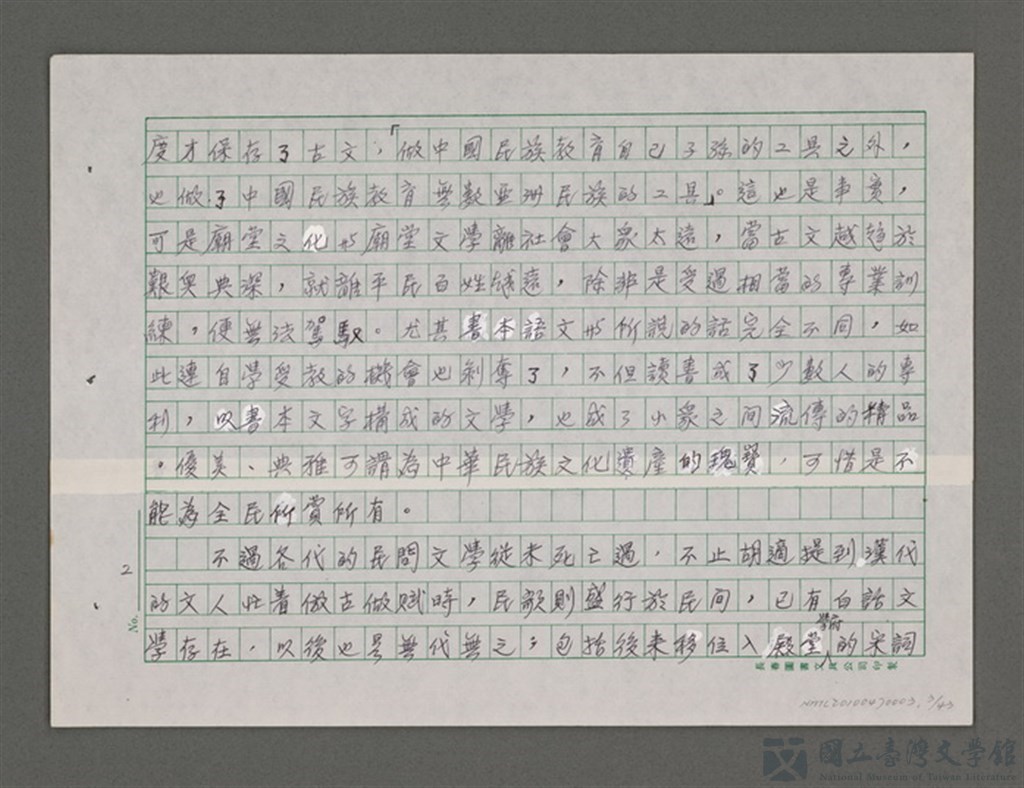 度才保存了古文，「做中國民族教育自己子孫的工具之外，
也做了中國民族教育無數亞洲民族的工具」。這也是事實，
可是廟堂文化與廟堂文學離社會大衆太遠，當古文越趨於
艱奧典深，就離平民百姓越遠，除非是受過相當的專業訓
練，便無法駕馭。尤其書本語文與所說的話完全不同，如
此連自學受教的機會也剝奪了，不但讀書成了少數人的專
利，以書本文字構成的文學，也成了小衆之间流傳的精品
。優美、典雅可謂為中華民族文化遺產的瑰寶，可惜是不
能為全民所賞所有。
不過各代的民間文學從未死亡過，不止胡適提到漢代
的文人忙着倣古做賦時，民歌則盛行於民间，已有白話文
學存在，以後也是無代無之，包括後來移位入殿堂學府的宋詞
2
No.
長春圖書文具公司印製
NMTL20100470003, 3/43
國立臺灣文學館
National Museum of Taiwan Literature